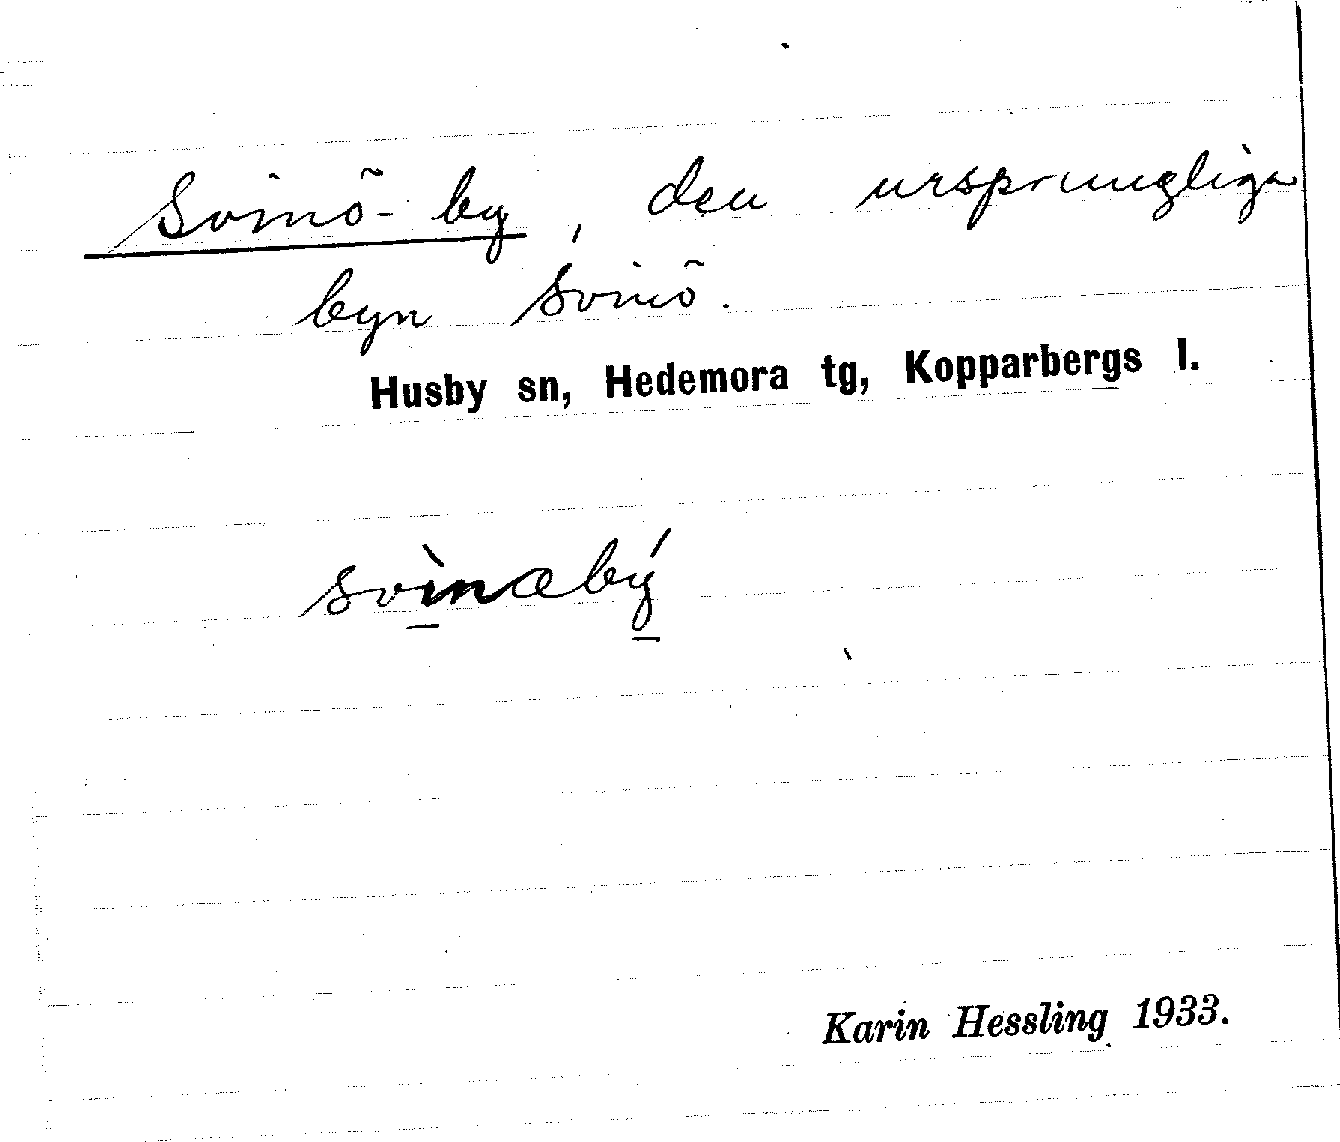 Svinö-by, den ursprungliga
byn Svinö.
Husby sn, Hedemora tg, Kopparbergs l.
svìnœbý
Karin Hessling 1933.